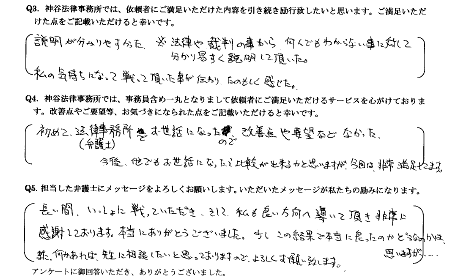 Q3. 神谷法律事務所では、依頼者にご満足いただけた内容を引き続き励行致したいと思います。ご満足いただ
けた点をご記載いただけると幸いです。
説明が分かりやすかった。※法律や裁判の事から何でもわからない事に対して
分かり易すく説明して頂いた。
私の気持ちになって戦って頂いた事が伝わりたのもしく感じた。
Q4. 神谷法律事務所では、事務員含め一丸となりまして依頼者にご満足いただけるサービスを心がけておりま
す。改善点やご要望等、お気づきになられた点をご記載いただけると幸いです。
初めて、法律事務所にお世話になったので改善点や要望などなかった。
(弁護士)
今後、他でもお世話になったら比較が出来るかと思いますが、今回は非常に満足してます。
Q5. 担当した弁護士にメッセージをよろしくお願いします。いただいたメッセージが私たちの励みになります。
長い間、いっしょに戦っていただき、そして私も良い方向へ導いて頂き非常に
感謝しております。本当にありがとうございました。少しこの結果で本当に良かったのかどうなのかは
思いますが…
また、何かあれば先生に相談したいと思っておりますので、よろしくお願い致します。
アンケートに御回答いただき、ありがとうございました。